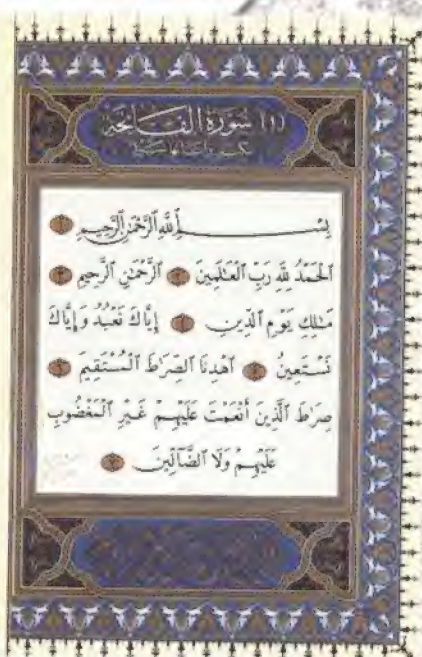 (١) سُورَةُ الفَاتِحَةِ
بِسْمِ اللَّهِ الرَّحْمَٰنِ الرَّحِيمِ ١
الْحَمْدُ لِلَّهِ رَبِّ الْعَالَمِينَ ٢ الرَّحْمَٰنِ الرَّحِيمِ ٣
مَالِكِ يَوْمِ الدِّينِ ٤ إِيَّاكَ نَعْبُدُ وَإِيَّاكَ
نَسْتَعِينُ ٥ اهْدِنَا الصِّرَاطَ الْمُسْتَقِيمَ ٦
صِرَاطَ الَّذِينَ أَنْعَمْتَ عَلَيْهِمْ غَيْرِ الْمَغْضُوبِ
عَلَيْهِمْ وَلَا الضَّالِّينَ ٧